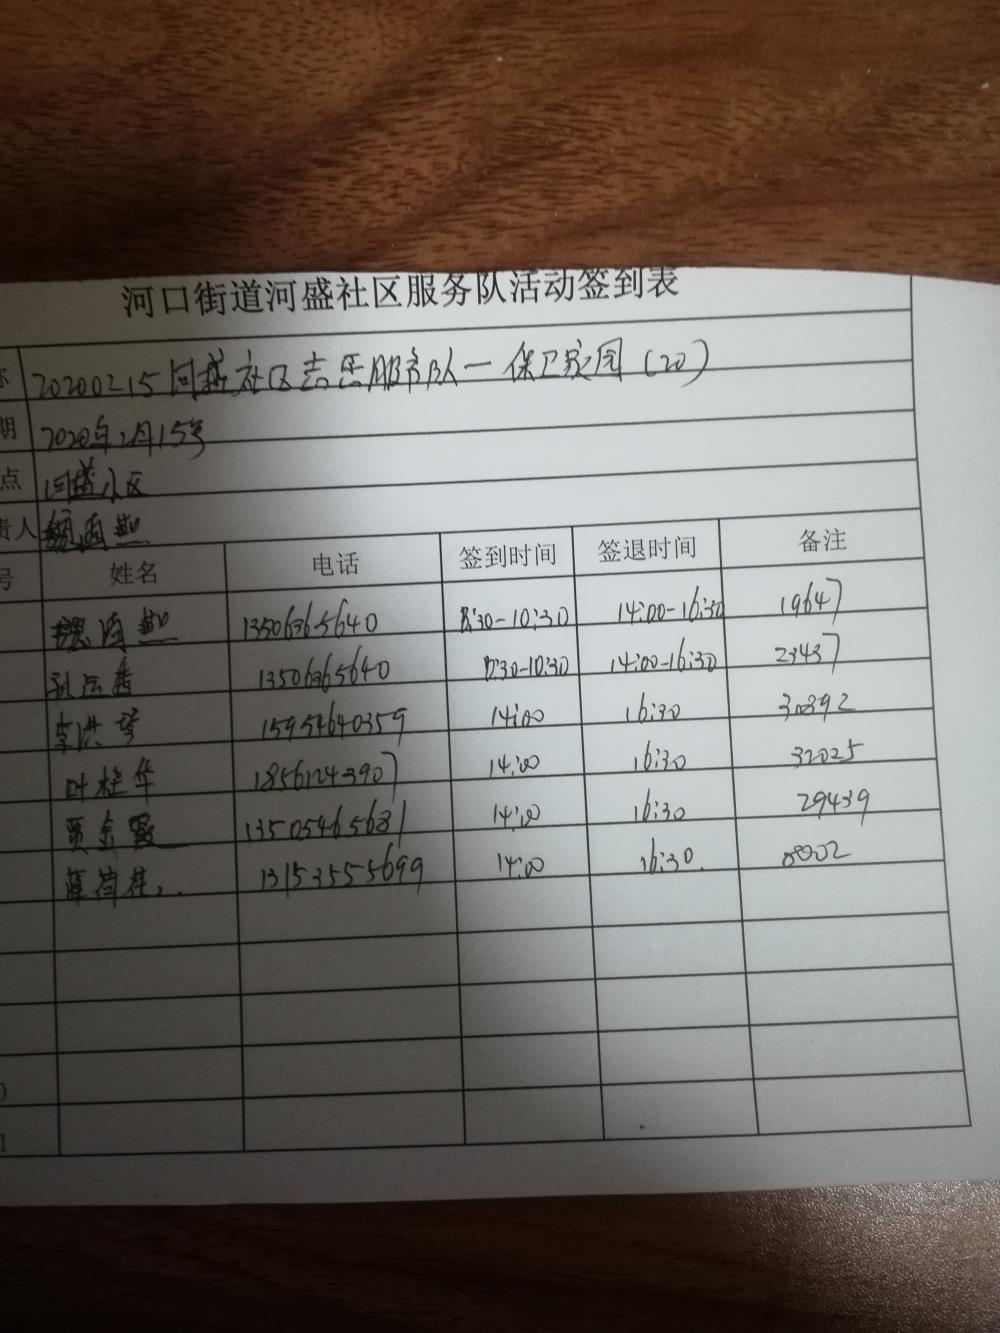 河口街道河盛社区服务队活动签到表
20200215河盛社区志愿服务队一保卫家园(20)
期 2020年2月15号
点 河盛小区
责人
号 姓名 电话 签到时间 签退时间 备注
13506365640 8:30-10:30 14:00-16:30 19647
13506365640 8:30-10:30 14:00-16:30 23437
李洪琴 15954640359 14:00 16:30 30392
叶桂华 18561243907 14:00 16:30 32025
贾金霞 13505465681 14:00 16:30 29439
薛荷桂 13153555699 14:00 16:30